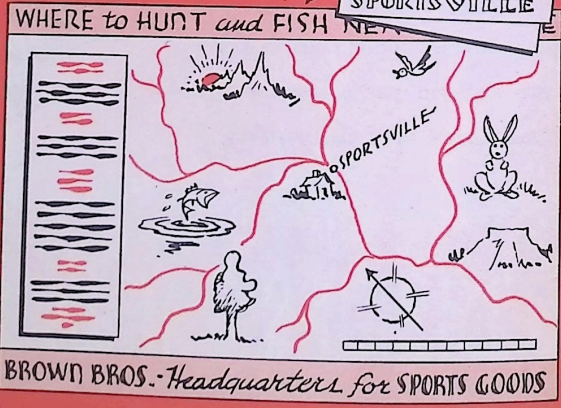 SPORTSVILLE
WHERE to HUNT and FISH
SPORTSVILLE
BROWN BROS.-Headquarters for SPORTS GOODS